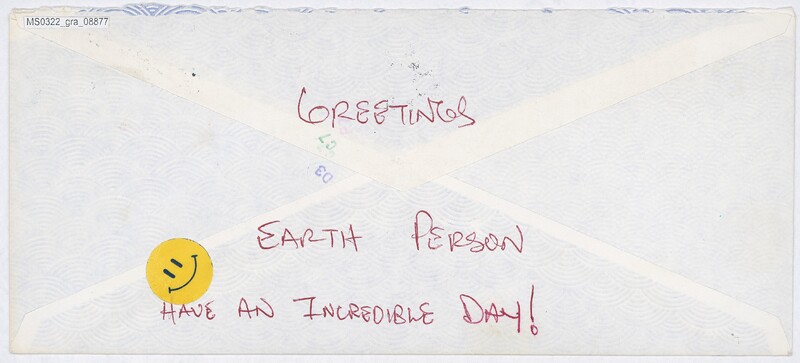 MS0322_gra_08877
GREETINGS
C7
D3
EARTH PERSON
HAVE AN INCREDIBLE DAY!